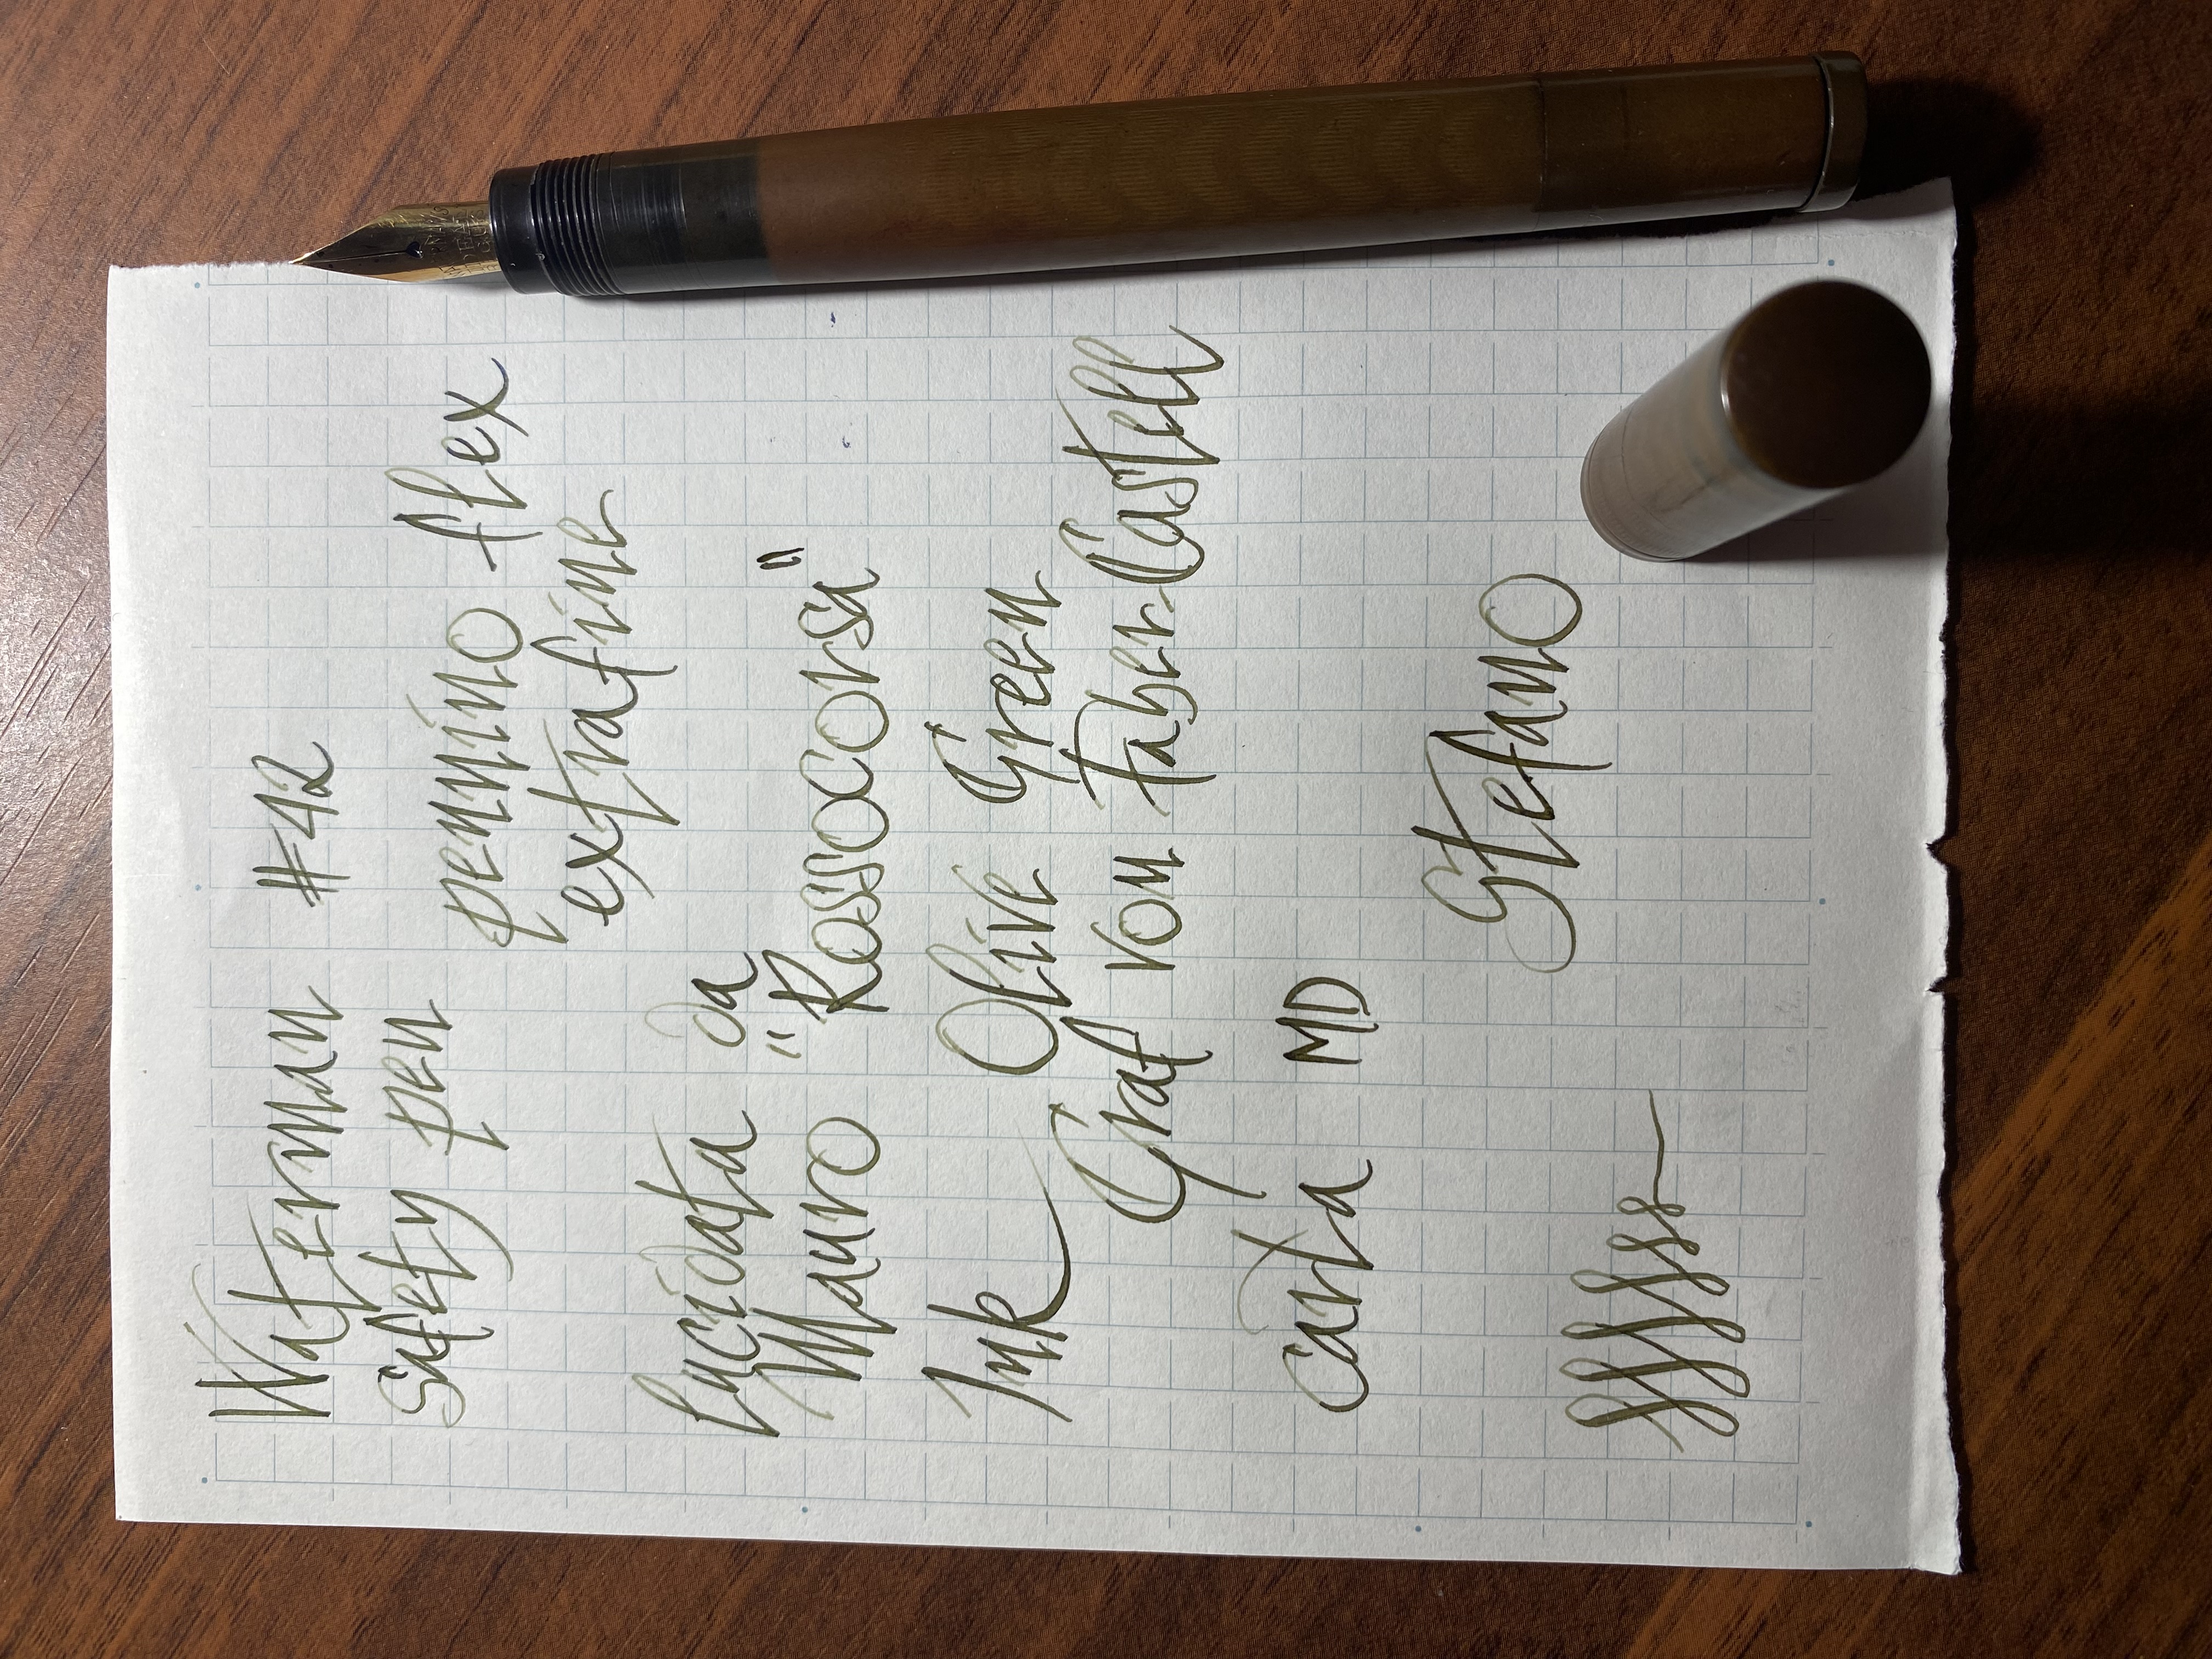 Waterman #42
safety pen
pennino flex
extrafine
lucidata da
Mauro "Rossocorsa"
Ink Olive Green
Graf von Faber-Castell
carta MD
Stefano